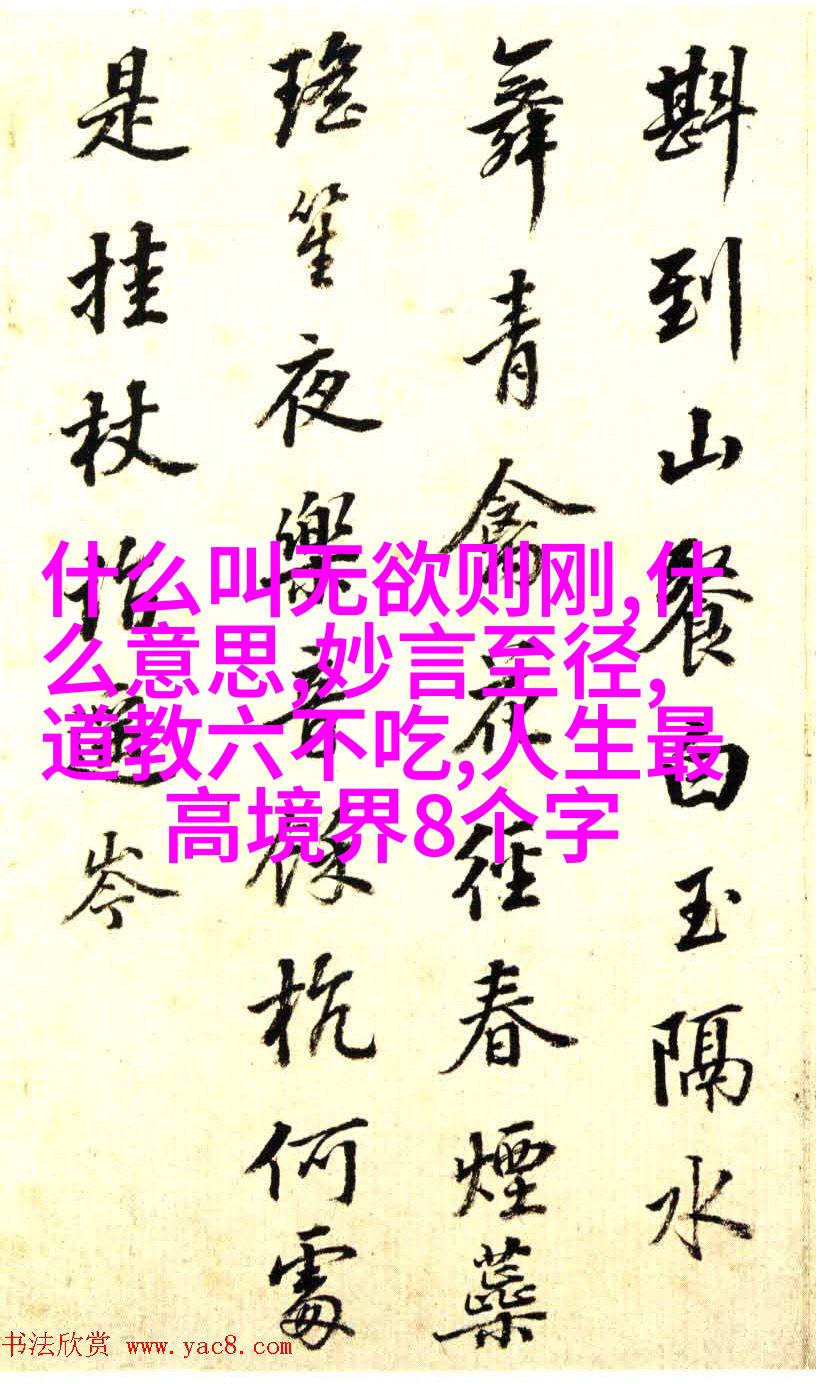 斟到山餐白玉隔水
舞青禽花徑春煙蘂
瑤笙夜樂章餘杭何處
是挂杖指遥岑
什么叫无欲则刚,什
么意思,妙言至径,
道教六不吃,人生最
高境界8个字
书法欣赏 www.yac8.com